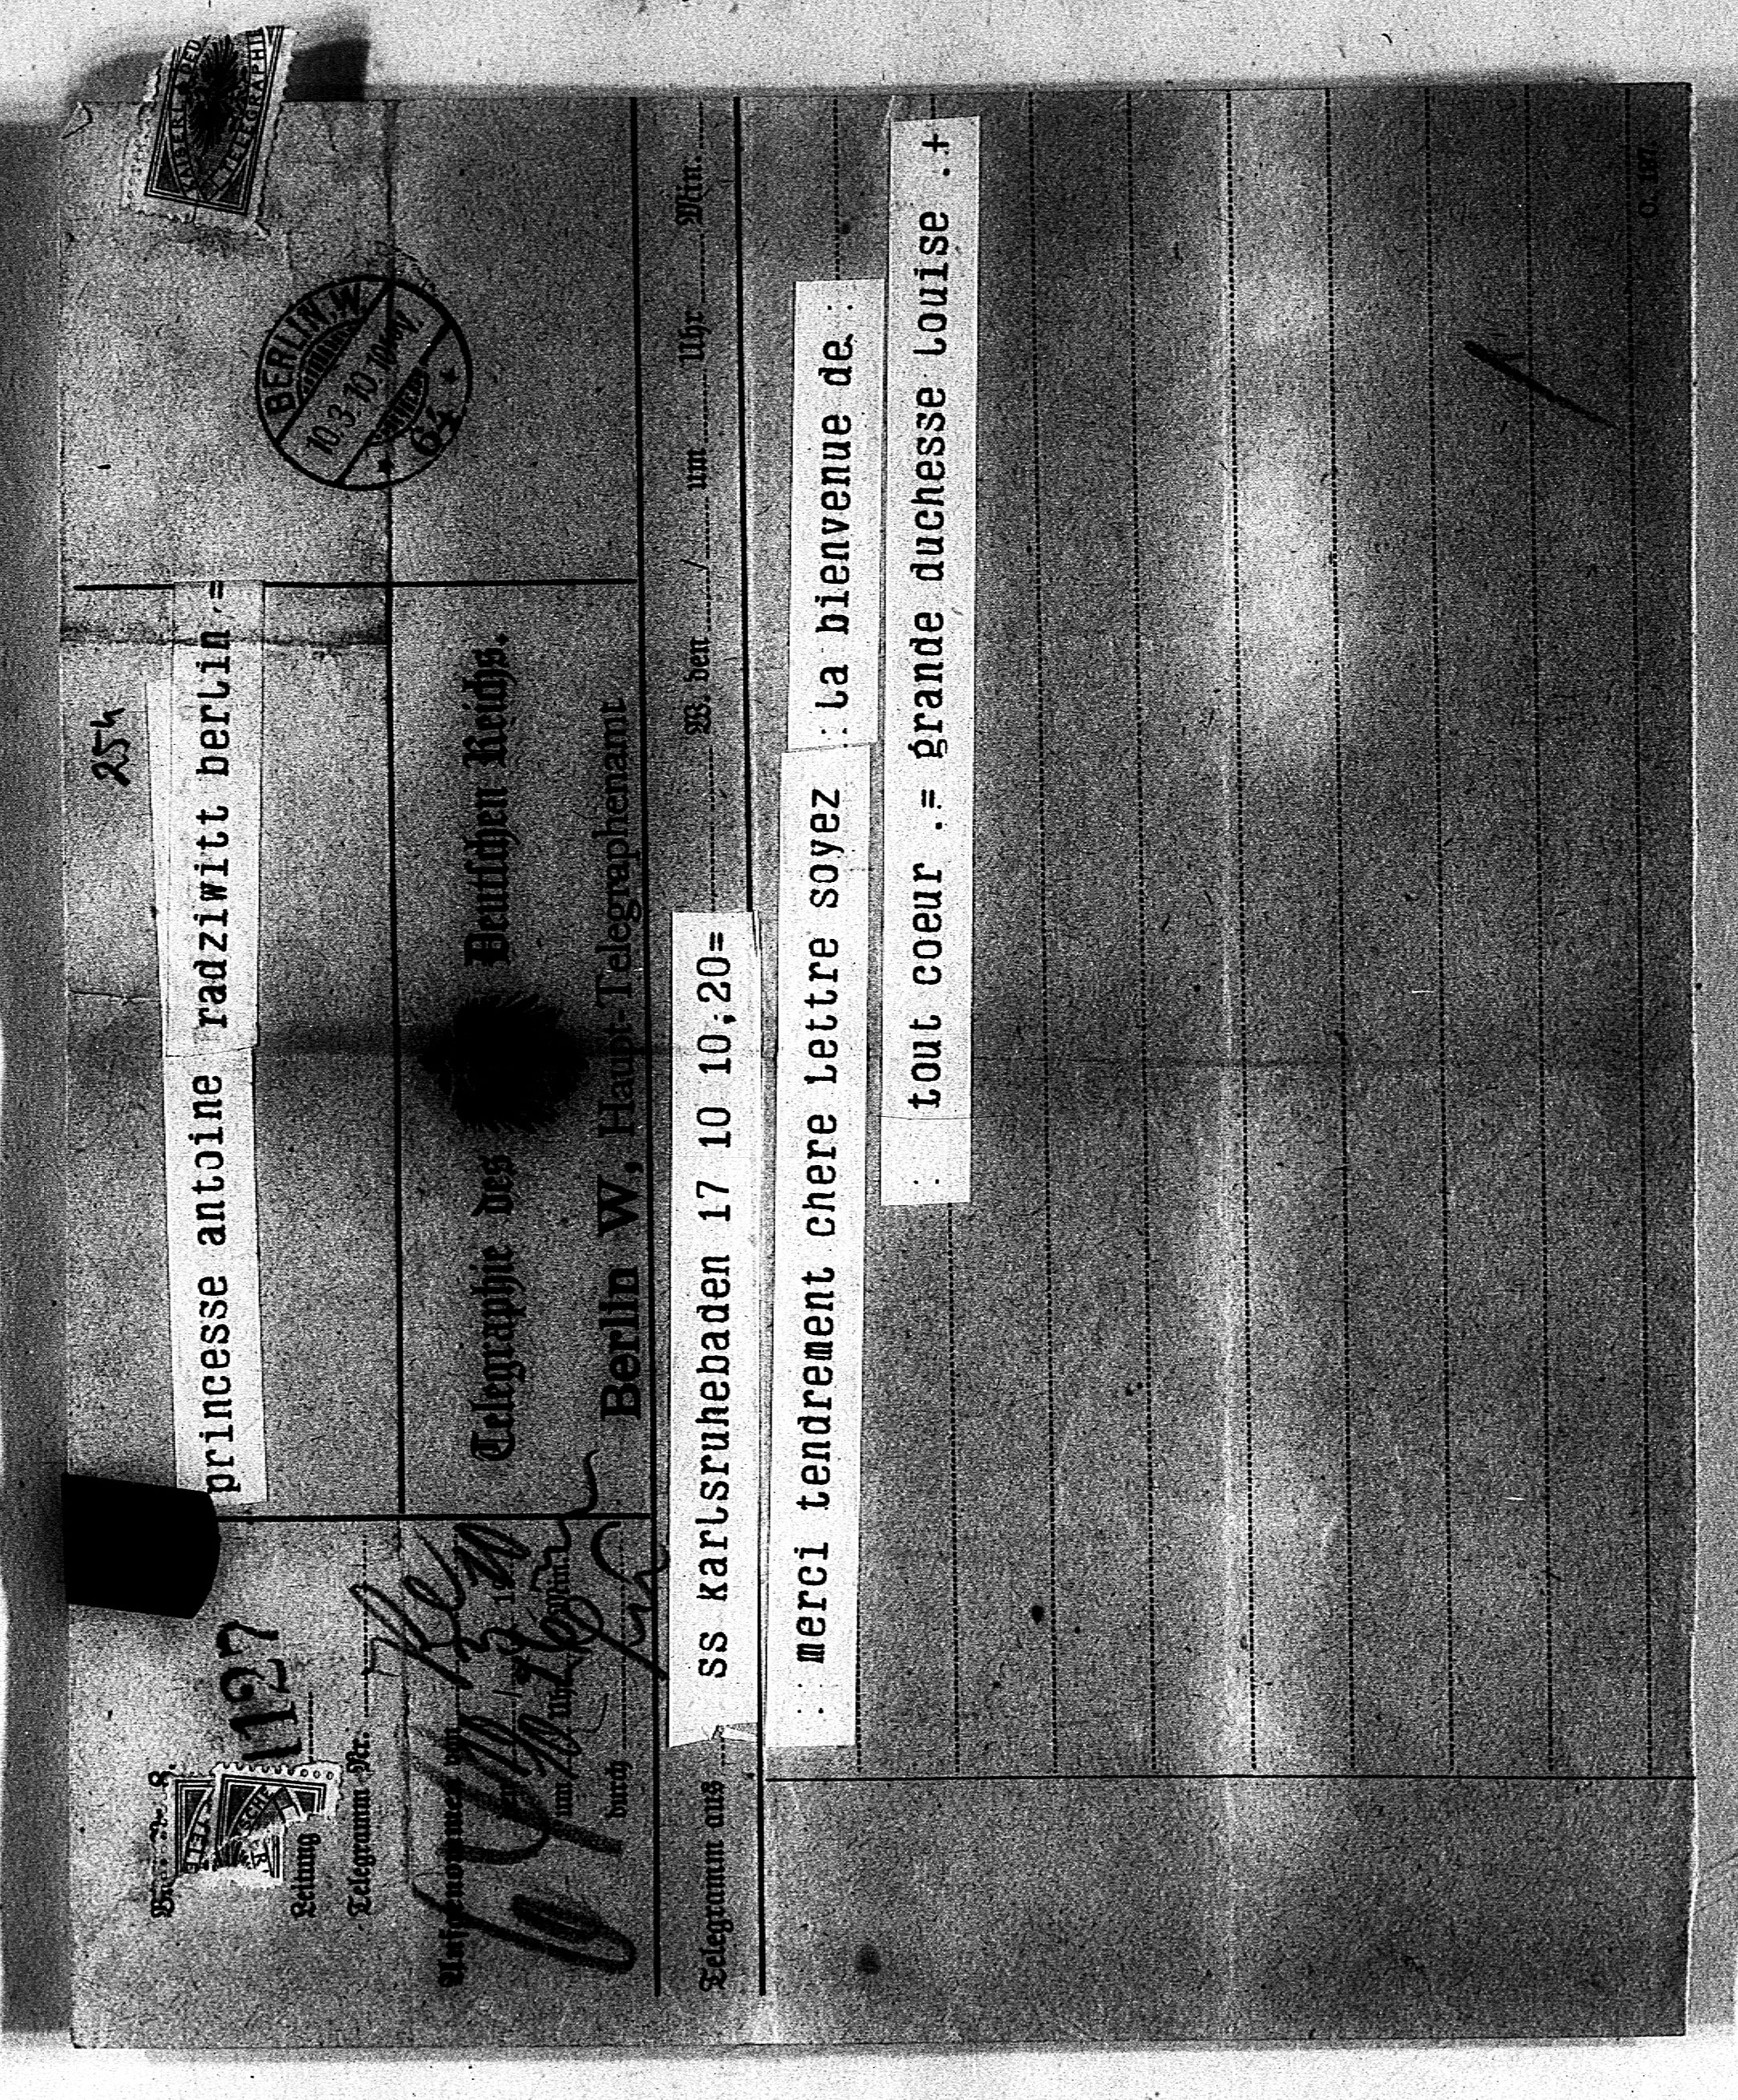 254
princesse antoine radziwill berlin =
KAISERL. DEU
TELEGRAPHIE
1127
Leitung
Telegramm Nr.
Telegraphie des Deutschen Reichs.
Berlin W, Haupt-Telegraphenamt
BERLIN, W
10.3.10.10
64
Aufgenommen von
um Uhr Min.
durch
Telegramm aus ss karlsruhebaden 17 10 10,20= W. den / um Uhr Min.
: merci tendrement chere lettre soyez : la bienvenue de :
: tout coeur .= grande duchesse louise .+
C. 187